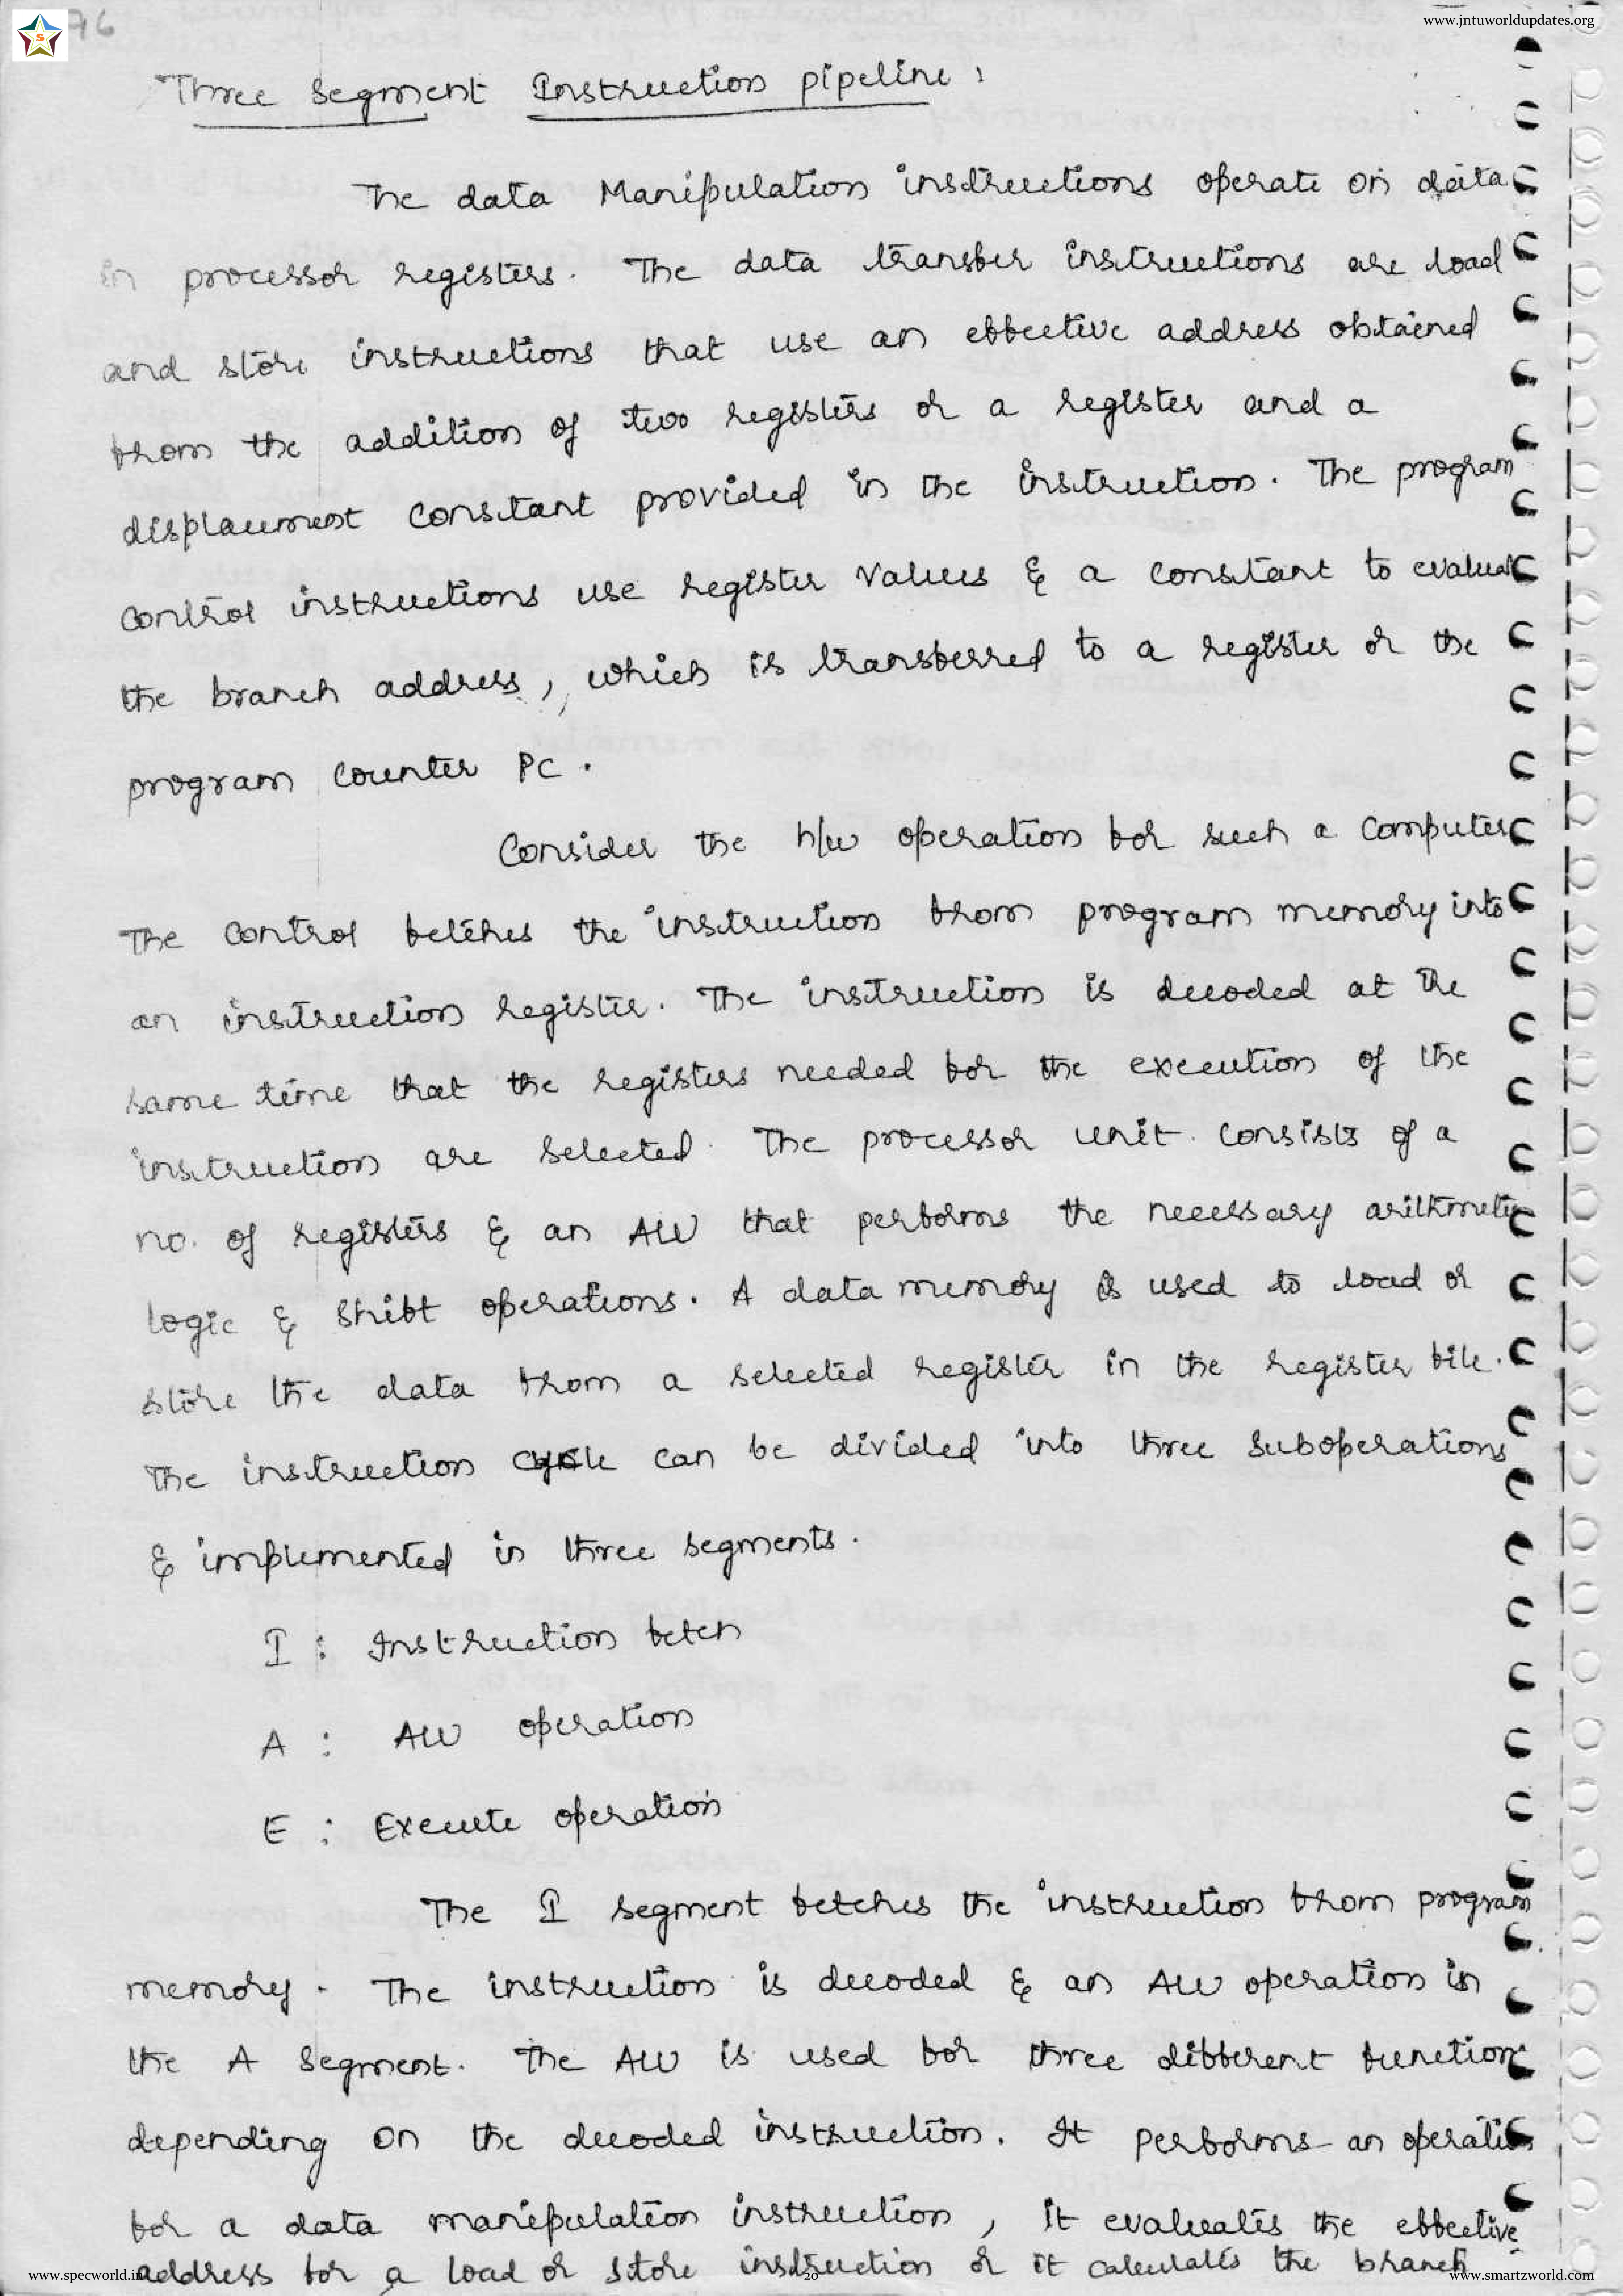 76
www.jntuworldupdates.org
S
Three Segment Instruction pipeline :
The data Manipulation instructions operate on data
in processor registers. The data transfer instructions are load
and store instructions that use an effective address obtained
from the addition of two registers or a register and a
displacement constant provided in the instruction. The program
control instructions use register values & a constant to evaluate
the branch address, which is transferred to a register or the
program counter PC.
Consider the h/w operation for such a computer
The control fetches the instruction from program memory into
an instruction register. The instruction is decoded at the
same time that the registers needed for the execution of the
instruction are selected. The processor unit consists of a
no. of registers & an ALU that performs the necessary arithmetic
logic & shift operations. A data memory is used to load or
store the data from a selected register in the register file.
The instruction cycle can be divided into three suboperations
& implemented in three segments.
I : Instruction fetch
A : ALU operation
E : Execute operation
The I segment fetches the instruction from program
memory. The instruction is decoded & an ALU operation in
the A Segment. The ALU is used for three different function
depending on the decoded instruction. It performs an operation
for a data manipulation instruction, it evaluates the effective
address for a load or store instruction or it calculates the branch
www.specworld.in
20
www.smartzworld.com